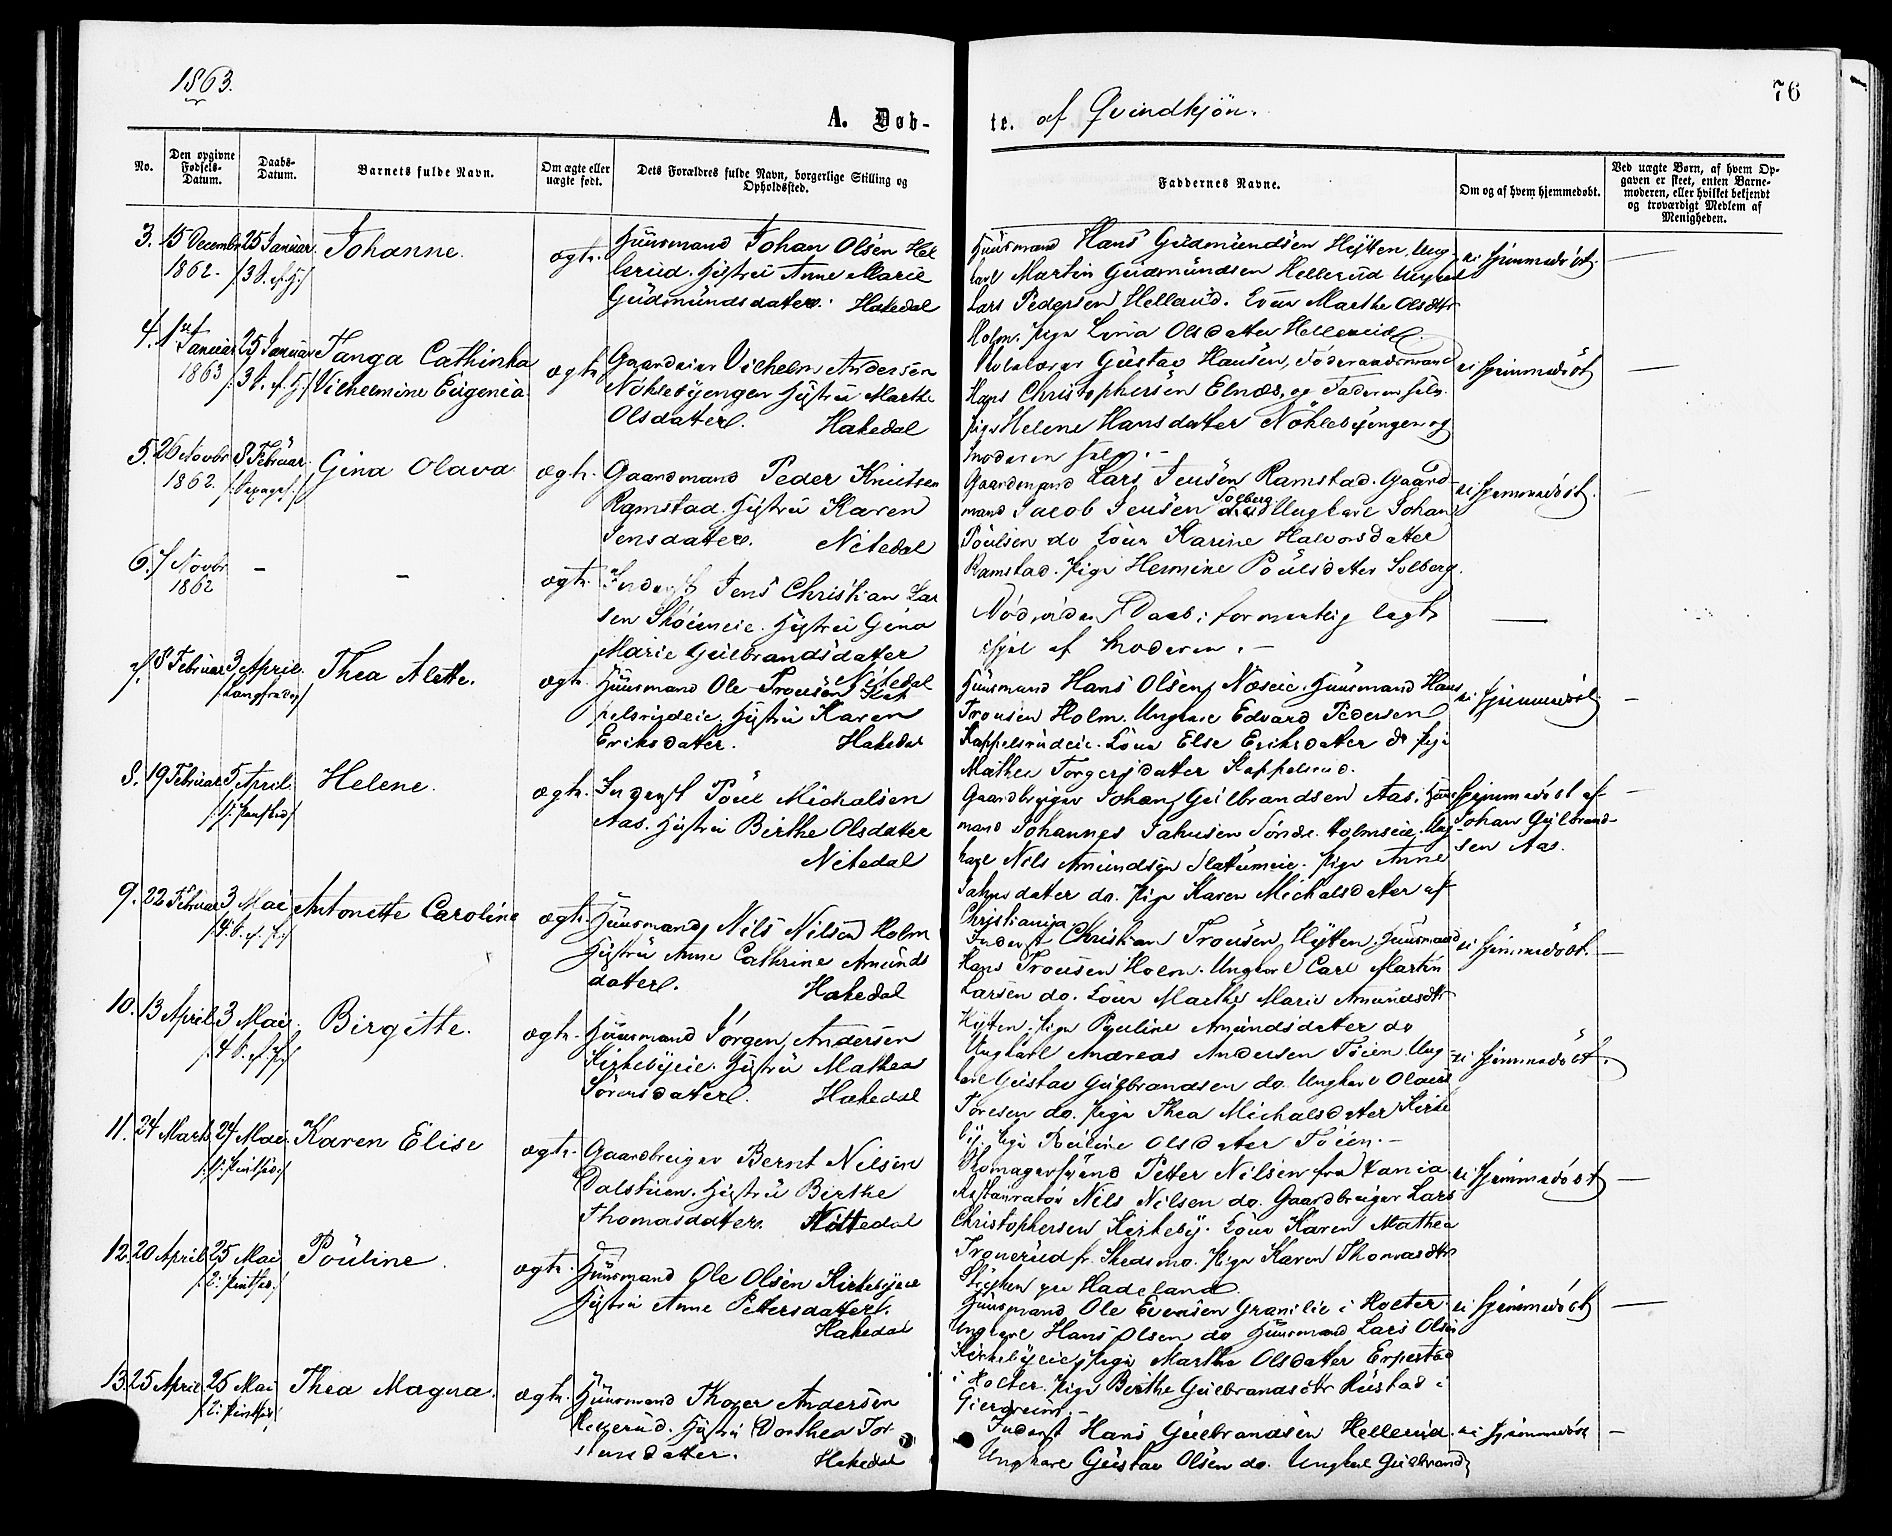 1863.
76
A. Døb-
te. af Qvindkjön.
No.
Den opgivne Fødsels-Datum.
Daabs-Datum.
Barnets fulde Navn.
Om ægte eller uægte født.
Dets Forældres fulde Navn, borgerlige Stilling og Opholdssted.
Faddernes Navne.
Om og af hvem hjemmedøbt.
Ved uægte Børn, af hvem Op-
gaven er skeet, enten Barne-
moderen, eller hvilket bekjendt
og troværdigt Medlem af
Menigheden.
3. 15 Decembr 25 Januar Johanne. ægte.
1862.
Huusmand Johan Olsen Hel
lerud. Hustru Anne Marie
Gudmundsdatter. Hakedal
Huusmand Hans Gudmundsen Hytten. Ung-
karl Martin Gudmundsen Hellerud Ungkarl
Lars Pedersen Hellerud. Kone Marthe Olsdtr
Holm. Pige Olsdatter Hellerud
ei hjemmedöbt.
4. 1st Januar 25 Januar Cathinka ægte
1863 Vilhelmine Eugenia
Gaardeier Vilhelm Andersen
Nöklebyengen Hustru Marthe
Olsdatter. Hakedal
Gustav Hansen, Föderaadsmand
Hans Christophersen Elnæs, og Faderen selv.
Pige Helene Hansdatter Nöklebyengen og
Moderen selv. -
ei hjemmedöbt
5. 26 Novbr 8 Februar Gina Olava ægte.
1862.
Gaardmand Peder Knutsen
Ramstad. Hustru Karen
Jensdatter. Nitedal
Gaardmand Lars Jensen Ramstad. Gaard-
mand Jacob Jensen Solberg Ungkarl Johan
Poulsen do Kone Karine Halvorsdatter
Ramstad. Pige Hermine Poulsdatter Solberg.
ei hjemmedöbt.
6. 7 Novbr - - ægte.
1862
Inderst Jens Christian Lar
sen Sköieneie. Hustru Gina
Marie Gulbrandsdatter
Nitedal
Död uden Daab;
ihjel af Moderen. -
7. 8 Februar 3 April Thea Alette. ægte.
/Langfredag/
Huusmand Ole Troisen Kap
pelsrudeie. Hustru Karen
Eriksdatter. Hakedal
Huusmand Hans Olsen Næseie. Huusmand Hans
Troisen Holm. Ungkarl Edvard Pedersen
Kappelsrudeie. Kone Else Eriksdatter do Pige
Mathea Torgersdatter Kappelsrud.
ei hjemmedöbt
8. 19 Februar 5 April. Helene. ægte.
Inderst Poul Michalsen
Aas. Hustru Birthe Olsdatter
Nitedal
Gaardbruger Johan Gulbrandsen Aas. Huus-
mand Johannes Jahnsen Söndre Holmseie. Ung-
karl Nils Amundsen Slattumeie. Pige Anne
Jahnsdatter do. Pige Karen Michalsdatter af
Christiania
Hjemmedöbt af
Johan Gulbrand-
sen Aas.
9. 22 Februar 3 Mai Antonette Caroline ægte.
Huusmand Nils Nilsen Holm
Hustru Anne Cathrine Amunds
datter. Hakedal
Inderst Christian Troisen Hytten. Huusmand
Hans Troisen Holm. Ungkarl Carl Martin
Larsen do. Kone Marthe Marie Amundsdtr
Hytten. Pige Pauline Amundsdatter do
ei hjemmedöbt.
10. 13 April 3 Mai. Birgitte. ægte.
Huusmand Jörgen Andersen
Kirkebyeie. Hustru Mathea
Sörensdatter. Hakedal
Ungkarl Andreas Andersen Töien. Ung
karl Gustav Gulbrandsen do. Ungkarl Olaus
Toresen do. Pige Thea Michalsdatter Kirke
by. Pige Pauline Olsdatter Töien. -
ei hjemmedöbt.
11. 24 Marts 24 Mai. Karen Elise ægte.
Gaardbruger Bernt Nilsen
Dalstuen. Hustru Birthe
Thomasdatter. Nittedal
Petter Nilsen fra Xania
Restauratör Nils Nilsen do. Gaardbruger Lars
Christophersen Kirkeby. Kone Karen Mathea
Tronerud fr. Skedsmo. Pige Karen Thomasdtr
Hadeland.
ei hjemmedöbt
12. 20 April 25 Mai Pouline. ægte.
/2: Pintsed./
Huusmand Ole Olsen Kirkebyeie
Hustru Anne Pettersdatter.
Hakedal
Huusmand Ole Evensen Granlie i Holter.
Ungkarl Hans Olsen do Huusmand Lars Olsen
Kirkebyeie, Pige Marthe Olsdatter Erpestad
i Holter. Pige Berthe Gulbrandsdtr Rustad i
Gjerdrum. -
ei hjemmedöbt
13. 25 April 25 Mai Thea Magna. ægte.
Huusmand Andersen
Hustru Dorthea Tor
stensdatter. Hakedal
Inderst Hans Gulbrandsen Hellerud.
Ungkarl Gustav Olsen do. Ungkarl Gulbrand
ei hjemmedöbt